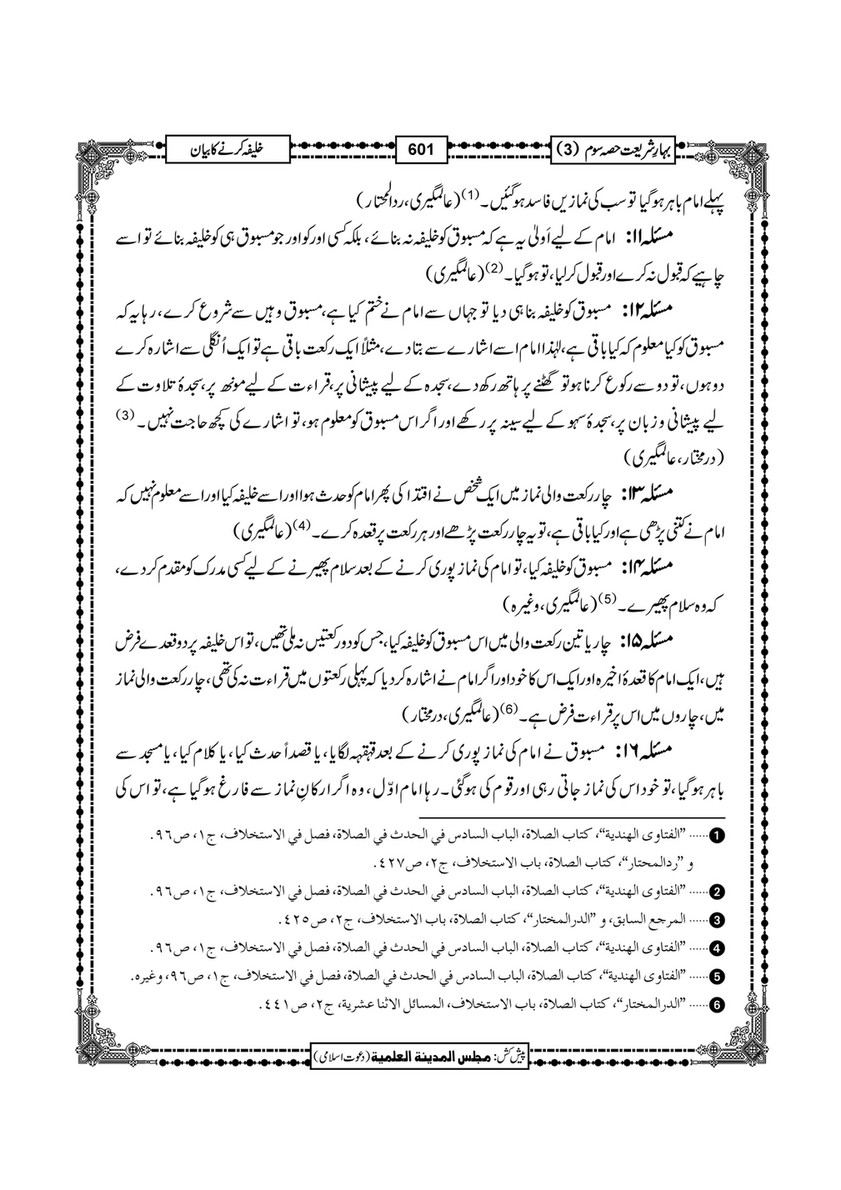 بہارِ شریعت حصہ سوم (3)
601
خلیفہ کرنے کا بیان
پہلے امام باہر ہوگیا تو سب کی نمازیں فاسد ہوگئیں۔(1) (عالمگیری، ردالمحتار)
مسئلہ ۱۱: امام کے لیے اَولیٰ یہ ہے کہ مسبوق کو خلیفہ نہ بنائے، بلکہ کسی اور کو اور جو مسبوق ہی کو خلیفہ بنائے تو اسے
چاہیے کہ قبول نہ کرے اور قبول کرلیا، تو ہوگیا۔(2) (عالمگیری)
مسئلہ ۱۲: مسبوق کو خلیفہ بنا ہی دیا تو جہاں سے امام نے ختم کیا ہے، مسبوق وہیں سے شروع کرے، رہا یہ کہ
مسبوق کو کیا معلوم کہ کیا باقی ہے، لہٰذا امام اسے اشارے سے بتادے، مثلاً ایک رکعت باقی ہے تو ایک اُنگلی سے اشارہ کرے
دو ہوں، تو دو سے رکوع کرنا ہو تو گھٹنے پر ہاتھ رکھ دے، سجدہ کے لیے پیشانی پر، قراءت کے لیے مونھ پر، سجدۂ تلاوت کے
لیے پیشانی و زبان پر، سجدۂ سہو کے لیے سینہ پر رکھے اور اگر اس مسبوق کو معلوم ہو، تو اشارے کی کچھ حاجت نہیں۔(3)
(درمختار، عالمگیری)
مسئلہ ۱۳: چار رکعت والی نماز میں ایک شخص نے اقتدا کی پھر امام کو حدث ہوا اور اسے خلیفہ کیا اور اسے معلوم نہیں کہ
امام نے کتنی پڑھی ہے اور کیا باقی ہے، تو یہ چار رکعت پڑھے اور ہر رکعت پر قعدہ کرے۔(4) (عالمگیری)
مسئلہ ۱۴: مسبوق کو خلیفہ کیا، تو امام کی نماز پوری کرنے کے بعد سلام پھیرنے کے لیے کسی مدرک کو مقدم کردے،
کہ وہ سلام پھیرے۔(5) (عالمگیری، وغیرہ)
مسئلہ ۱۵: چار یا تین رکعت والی میں اس مسبوق کو خلیفہ کیا، جس کو دو رکعتیں نہ ملی تھیں، تو اس خلیفہ پر دو قعدے فرض
ہیں، ایک امام کا قعدۂ اخیرہ اور ایک اس کا خود اور اگر امام نے اشارہ کردیا کہ پہلی رکعتوں میں قراءت نہ کی تھی، چار رکعت والی نماز
میں، چاروں میں اس پر قراءت فرض ہے۔(6) (عالمگیری، درمختار)
مسئلہ ۱۶: مسبوق نے امام کی نماز پوری کرنے کے بعد قہقہہ لگایا، یا قصداً حدث کیا، یا کلام کیا، یا مسجد سے
باہر ہوگیا، تو خود اس کی نماز جاتی رہی اور قوم کی ہوگئی۔ رہا امام اوّل، وہ اگر ارکانِ نماز سے فارغ ہوگیا ہے، تو اس کی
1 ...... ”الفتاوى الهندية“، كتاب الصلاة، الباب السادس في الحدث في الصلاة، فصل في الاستخلاف، ج١، ص٩٦.
و ”ردالمحتار“، كتاب الصلاة، باب الاستخلاف، ج٢، ص٤٢٧.
2 ...... ”الفتاوى الهندية“، كتاب الصلاة، الباب السادس في الحدث في الصلاة، فصل في الاستخلاف، ج١، ص٩٦.
3 ...... المرجع السابق، و ”الدرالمختار“، كتاب الصلاة، باب الاستخلاف، ج٢، ص٤٢٥.
4 ...... ”الفتاوى الهندية“، كتاب الصلاة، الباب السادس في الحدث في الصلاة، فصل في الاستخلاف، ج١، ص٩٦.
5 ...... ”الفتاوى الهندية“، كتاب الصلاة، الباب السادس في الحدث في الصلاة، فصل في الاستخلاف، ج١، ص٩٦، وغيره.
6 ...... ”الدرالمختار“، كتاب الصلاة، باب الاستخلاف، المسائل الاثنا عشرية، ج٢، ص٤٤١.
پیش کش: مجلس المدينة العلمية (دعوتِ اسلامی)